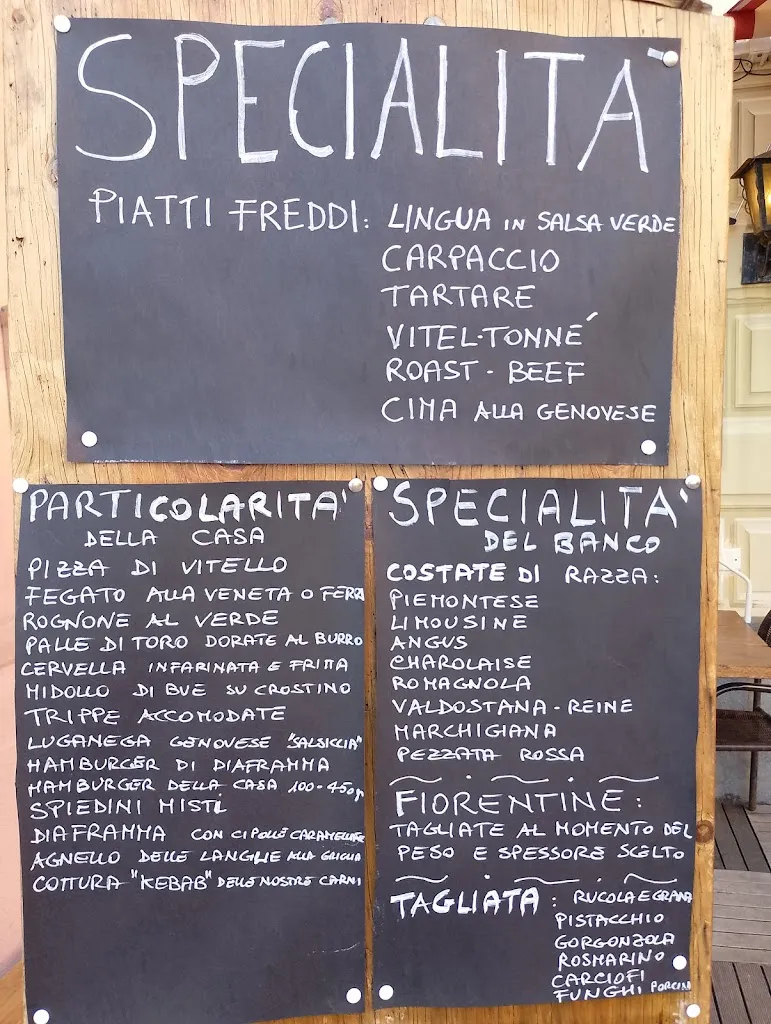 SPECIALITÀ
PIATTI FREDDI: LINGUA IN SALSA VERDE
CARPACCIO
TARTARE
VITEL-TONNÉ
ROAST-BEEF
CIMA ALLA GENOVESE
PARTICOLARITA'
DELLA CASA
PIZZA DI VITELLO
FEGATO ALLA VENETA O FERRI
ROGNONE AL VERDE
PALLE DI TORO DORATE AL BURRO
CERVELLA INFARINATA E FRITTA
MIDOLLO DI BUE SU CROSTINO
TRIPPE ACCOMODATE
LUGANEGA GENOVESE "SALSICCIA"
HAMBURGER DI DIAFRAMMA
HAMBURGER DELLA CASA 100-450gr
SPIEDINI MISTI
DIAFRAMMA CON CIPOLLE CARAMELLATE
AGNELLO DELLE LANGHE ALLA GRIGLIA
COTTURA "KEBAB" DELLE NOSTRE CARNI
SPECIALITA'
DEL BANCO
COSTATE DI RAZZA:
PIEMONTESE
LIMOUSINE
ANGUS
CHAROLAISE
ROMAGNOLA
VALDOSTANA-REINE
MARCHIGIANA
PEZZATA ROSSA
FIORENTINE:
TAGLIATE AL MOMENTO DEL
PESO E SPESSORE SCELTO
TAGLIATA: RUCOLA E GRANA
PISTACCHIO
GORGONZOLA
ROSMARINO
CARCIOFI
FUNGHI PORCINI